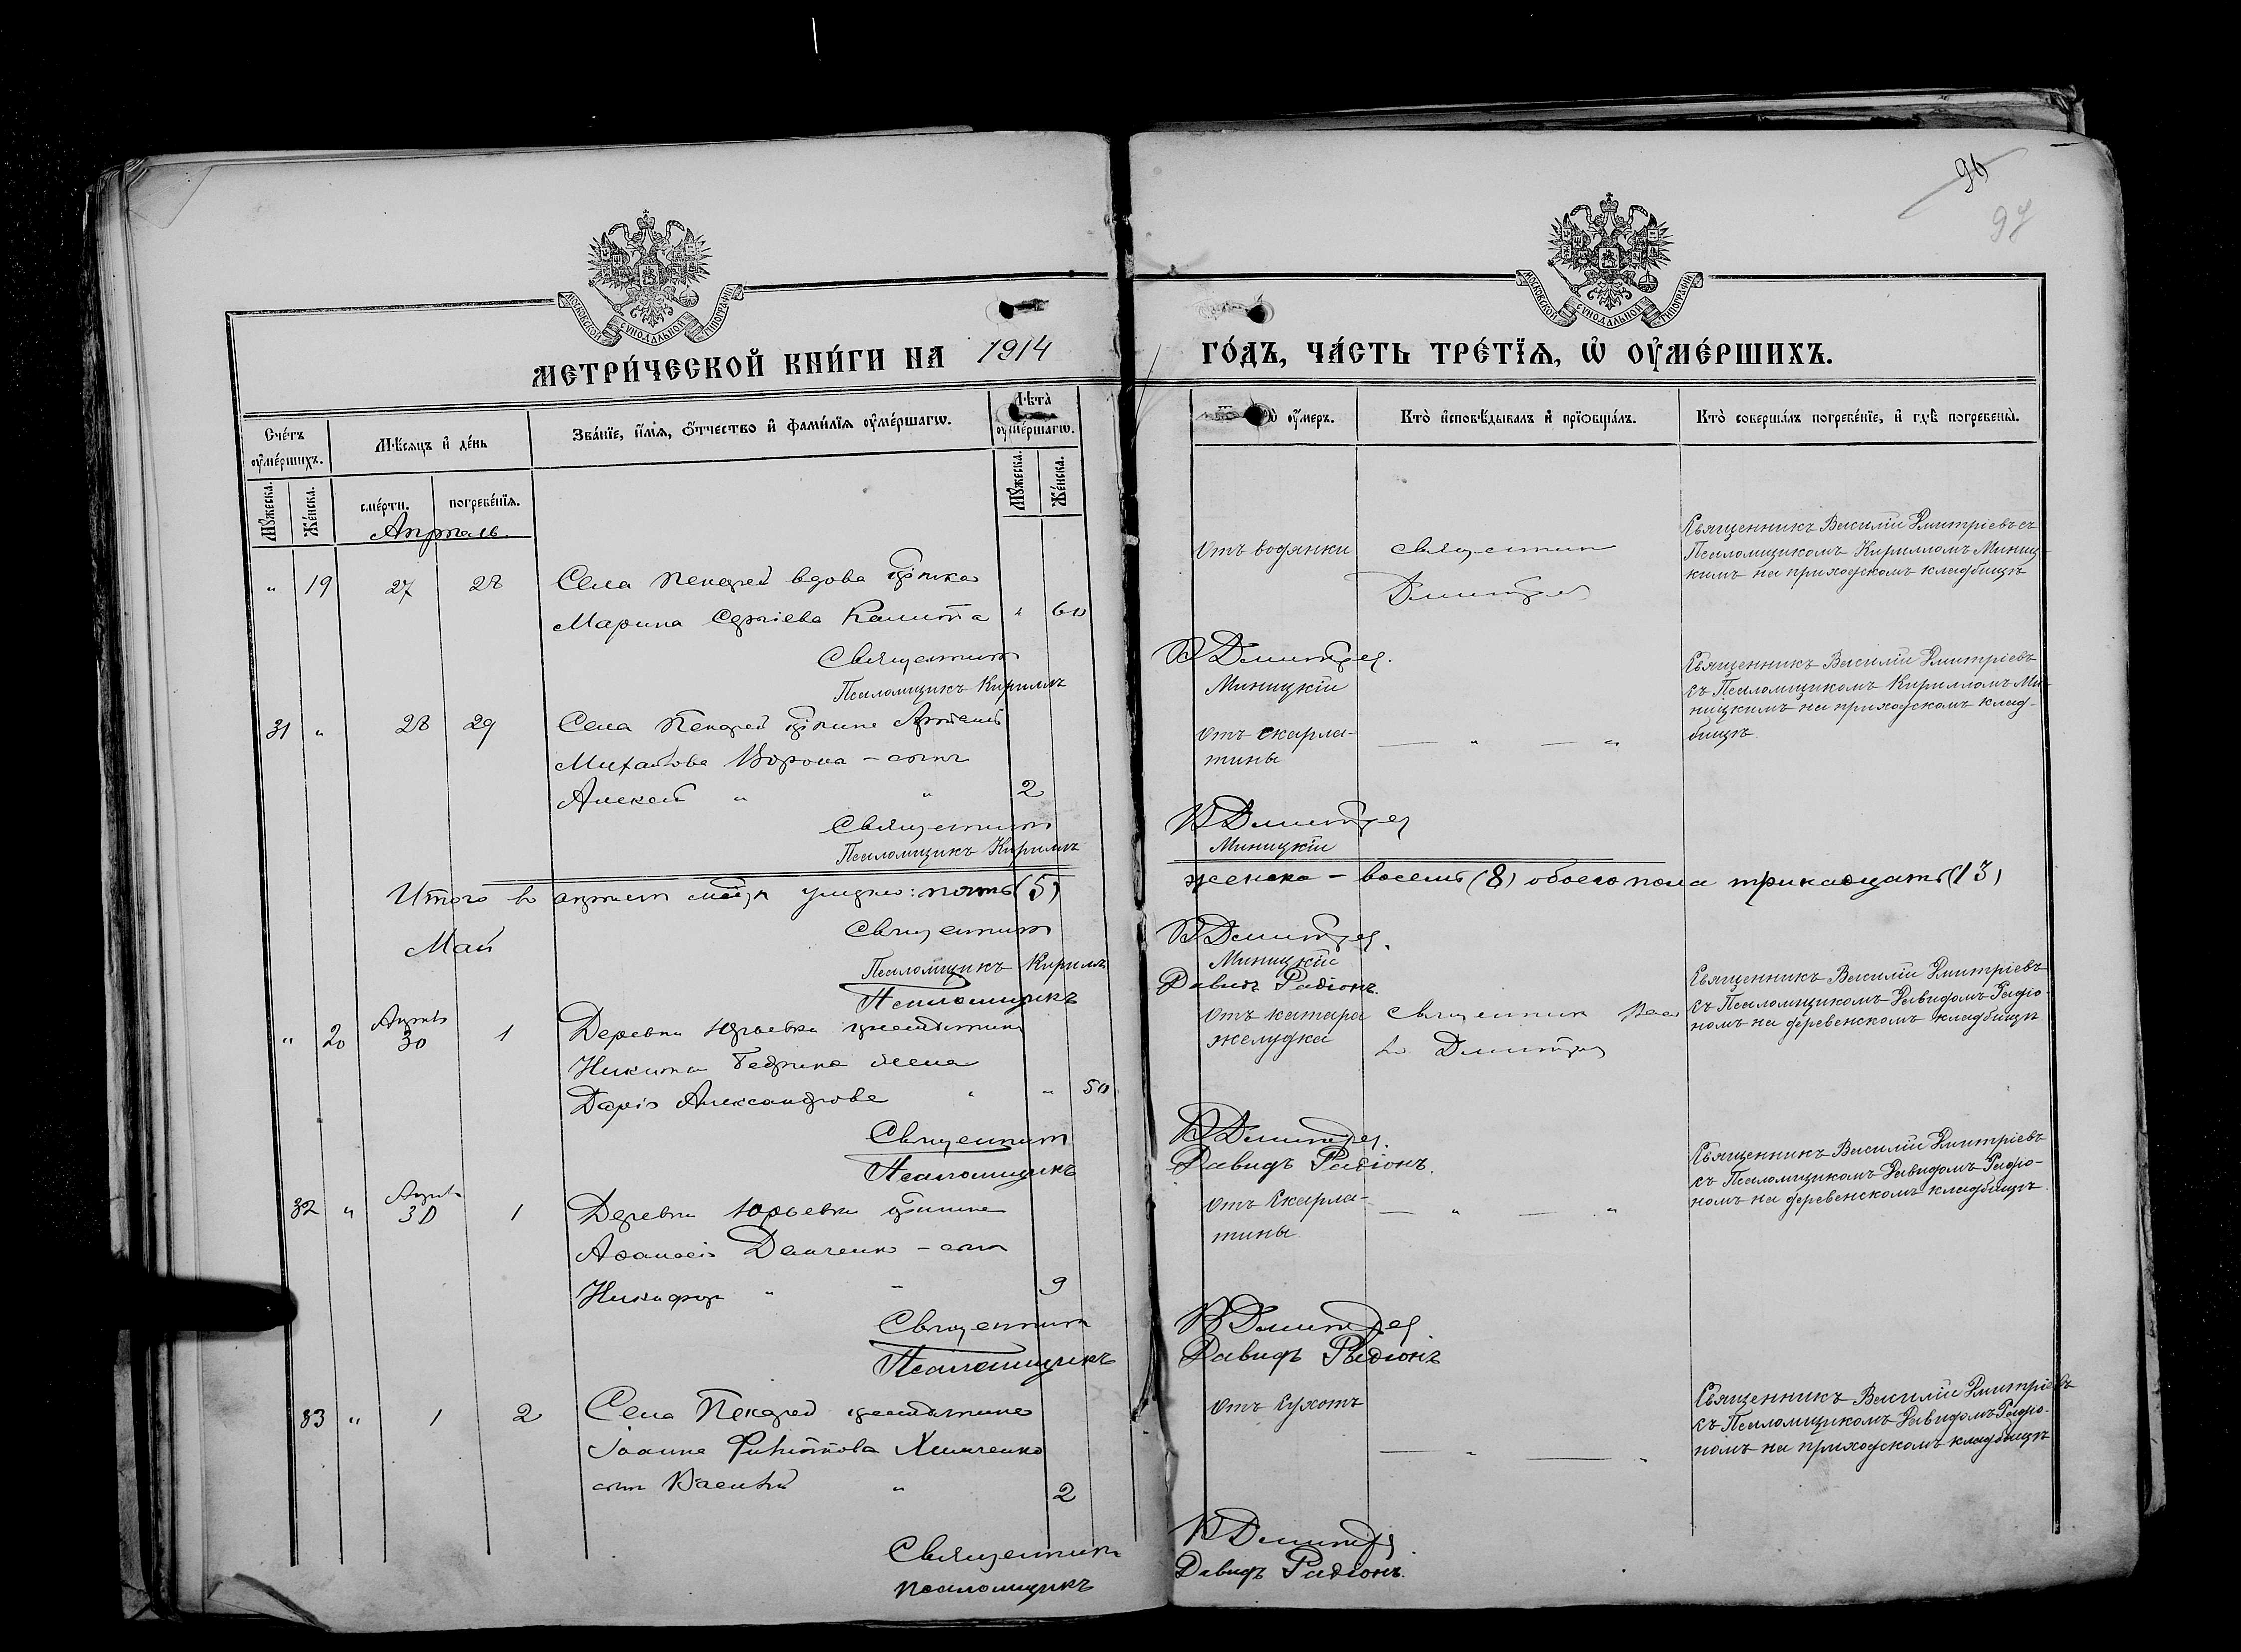 96
97
МОСКОВСКОЙ СѴНОДАЛЬНОЙ ТИПОГРАФІИ
МОСКОВСКОЙ СѴНОДАЛЬНОЙ ТИПОГРАФІИ
МЕТРИ́ЧЕСКОЙ КНИ́ГИ НА 1914 ГО́ДЪ, ЧА́СТЬ ТРЕ́ТЇѦ, Ѡ҆ ОУ҆МЕ́РШИХЪ.
Сче́тъ оу҆ме́ршихъ.
Мꙋ́жеска.
Же́нска.
Мѣ́сѧцъ и҆ де́нь
сме́рти.
погребе́нїѧ.
Зва́нїе, и҆́мѧ, ѻ҆́тчество и҆ фами́лїѧ оу҆ме́ршагѡ.
Лѣ́та оу҆ме́ршагѡ.
Мꙋ́жеска.
Же́нска.
оу҆́меръ.
Кто̀ и҆сповѣ́дывалъ и҆ прїѡбща́лъ.
Кто̀ соверша́лъ погребе́нїе, и҆ гдѣ̀ погребены̀.
Апрѣль.
" 19 27 28 Села Пекарей вдова
Марина Сергіева Калита " 60
Отъ водянки
Священник
Дмитріев
Священникъ Василій Дмитріевъ съ
Псаломщикомъ Кирилломъ Миниц-
кимъ на приходскомъ кладбищѣ
Священник В Дмитріев.
Псаломщикъ Кириллъ Миницкій
31 " 28 29 Села Пекарей
Михайлова Ворона - сынъ
Алексей " " 2
Отъ скарла-
тины
— " — "
Священникъ Василій Дмитріевъ
съ Псаломщикомъ Кирилломъ Ми-
ницкимъ на приходскомъ клад-
бищѣ
Священник В Дмитріев
Псаломщикъ Кириллъ Миницкій
Итого в апреле умерло: пять (5) женска - восемь (8) обоего пола тринадцать (13)
Священник В Дмитріев.
Май
Псаломщикъ Кириллъ Миницкій
Псаломщикъ Давидъ Радіонъ.
" 20 Апрѣль 30 1 Деревни Юрьевки крестьянина
Никиты жена
Дарія Александрова " " 50
Отъ катара
желудка
Священник Васи
Дмитріев
Священникъ Василій Дмитріевъ
съ Псаломщикомъ Давидомъ Радіо-
номъ на деревенскомъ кладбищѣ
Священник В Дмитріев.
Псаломщикъ Давидъ Радіонъ.
32 " Апрѣль 30 1 Деревни Юрьевки
Аѳанасія Демченко - сын
Никифор " " 9
Отъ Скарла-
тины
— " — "
Священникъ Василій Дмитріевъ
съ Псаломщикомъ Давидомъ Радіо-
номъ на деревенскомъ кладбищѣ.
Священник В Дмитріев
Псаломщикъ Давидъ Радіонъ
33 " 1 2 Села Пекарей крестьянина
Іоанна Филиппова Химченко
сын Василій " 2
Отъ Сухотъ
— " — "
Священникъ Василій Дмитріевъ
съ Псаломщикомъ Давидомъ Радіо-
номъ на приходскомъ кладбищѣ
Священник В Дмитріев.
Псаломщикъ Давидъ Радіонъ.